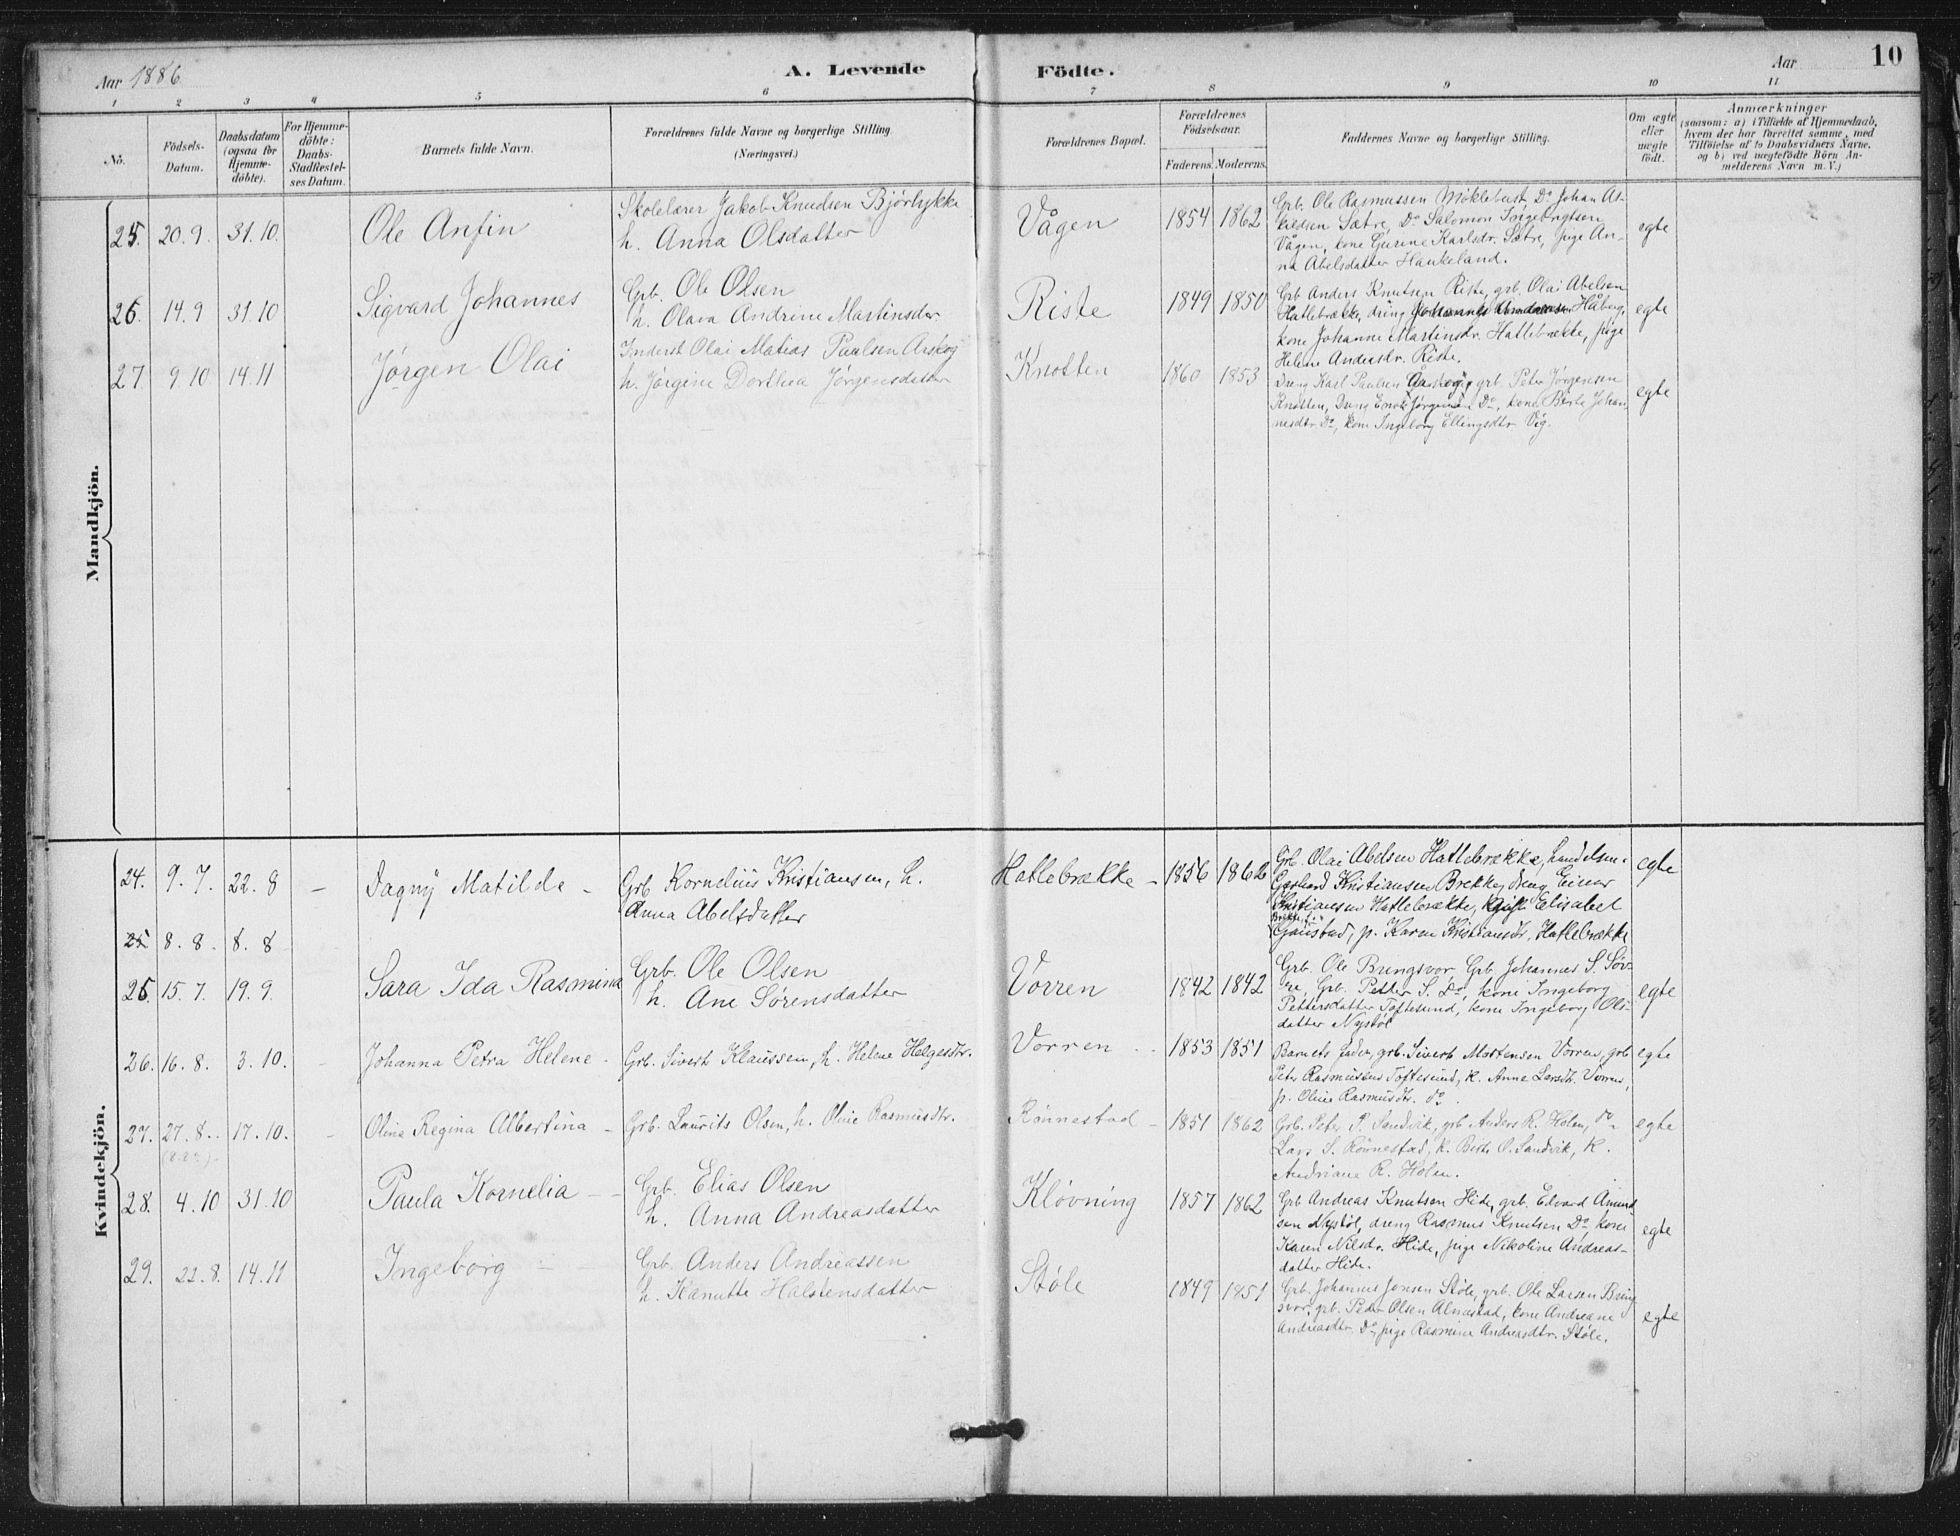 Aar 1886
A. Levende Födte.
Aar
10
1 2 3 4 5 6 7 8 9 10 11
No.
Födsels-Datum.
Daabsdatum (ogsaa for Hjemme-döbte).
For Hjemme-döbte: Daabs-Stadfestel-ses Datum.
Barnets fulde Navn.
Forældrenes fulde Navne og borgerlige Stilling. (Næringsvei.)
Forældrenes Bopæl.
Forældrenes Födselsaar.
Faderens. Moderens.
Faddernes Navne og borgerlige Stilling.
Om ægte eller uægte födt.
Anmærkninger
(saasom: a) i Tilfælde af Hjemmedaab,
hvem der har forrettet samme, med
Tilföielse af to Daabsvidners Navne,
og b) ved uægtefödte Börn An-
melderens Navn m. V.)
Mandkjön.
25. 20.9. 31.10. Ole Anfin
Skolelærer Jakob Knudsen Bjørlykke
h. Anna Olsdatter
Vågen 1854 1862
Grb. Ole Rasmussen Möklebust, Do Johan As-
kildsen Sætre, Do Salomon Ingebrigtsen
Vågen, kone Gurine Karlsdr. Sætre, pige An-
na Abelsdatter Haukeland.
egte
26. 14.9 31.10 Sigvard Johannes
Grb. Ole Olsen
h. Olava Andrine Martinsdr
Riste 1849 1850
Grb Anders Knutsen Riste, grb. Olai Abelsen
Hatlebrække, dreng Johannes Håberg,
kone Johanne Martinsdr. Hatlebrække, pige
Helene Andersdr. Riste.
egte
27. 9.10 14.11 Jørgen Olai
Inderst Olai Matias Paulsen Årskog
h. Jørgine Dorthea Jørgensdatter
Knotten 1860 1853
Dreng Karl Paulsen Årskog, grb. Peter Jørgensen
Knotten, Dreng Enok Jørgensen Do, kone Berte Johan-
nesdtr. Do, kone Ingeborg Ellingsdtr. Vig.
egte
Kvindekjön.
24. 9.7. 22.8 – Dagny Matilde –
Grb Kornelius Kristiansen, h.
Anna Abelsdatter
Hatlebrække – 1856 1862
Grb. Olai Abelsen Hatlebrække, handelsm.
Gerhard Kristiansen Brekke, dreng Einar
Kristiansen Hatlebrække, Elisabet
Gaustad, p. Karen Kristiansdr. Hatlebrække
egte
25 8.8. 8.8
25. 15.7. 19.9. Sara Ida Rasmina
Grb. Ole Olsen
h. Ane Sørensdatter
Vorren 1842 1842
Grb. Ole Bringsvor, Grb Johannes S. Söv-
re, Grb. Petter S. Do, kone Ingeborg
Pettersdatter Toftesund, kone Ingeborg Ols-
datter Nystöl
egte
26. 16.8. 3.10. Johanna Petra Helene –
Grb. Sivert Klaussen, h. Helene Helgesdtr.
Vorren 1853 1851
Barnets fader, grb. Sivert Mortensen Vorren, grb
Peter Rasmussen Toftesund, k. Anne Larsdtr. Vorren,
p. Oline Rasmusdtr. do.
egte
27. 27.8. 17.10. – Oline Regina Albertina –
Grb. Laurits Olsen, h. Oline Rasmusdtr.
Rønnestad – 1851 1862
Grb. Peter P. Sandvik, grb Anders R. Holen, do
Lars S. Rønnestad, k. Berte O. Sandvik, k.
Andriane R. Holen.
egte
28. 4.10 31.10 Paula Kornelia – –
Grb. Elias Olsen
h. Anna Andreasdatter
Kløvning 1857 1862
Grb Andreas Knutsen Hide, grb. Edvard Amund-
sen Nystøl, dreng Rasmus Knutsen Do, kone
Karen Nilsdr. Hide, pige Nikoline Andreas-
datter Hide.
egte
29. 22.8. 14.11 Ingeborg –
Grb. Anders Andreassen
h. Kanutte Halstensdatter
Støle 1849 1851
Grb. Johannes Jonsen Støle, grb. Ole Larsen Bring
svor, grb. Peder Olsen Almestad, kone Andreane
Andreasdtr. Do, pige Rasmine Andreasdtr. Støle.
egte